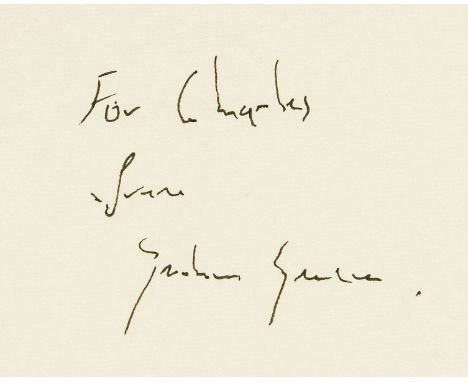 For Charles
from
Graham Greene.